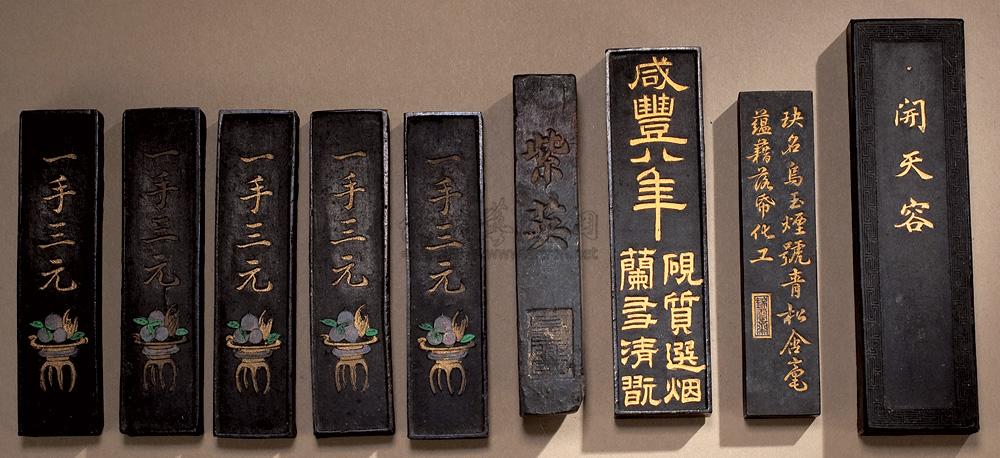 一手三元
一手三元
一手三元
一手三元
一手三元
紫英
咸豐八年
硯質選烟
蘭清翫
玦名烏玉煙號青松含毫
蘊藉落帋化工
開天容